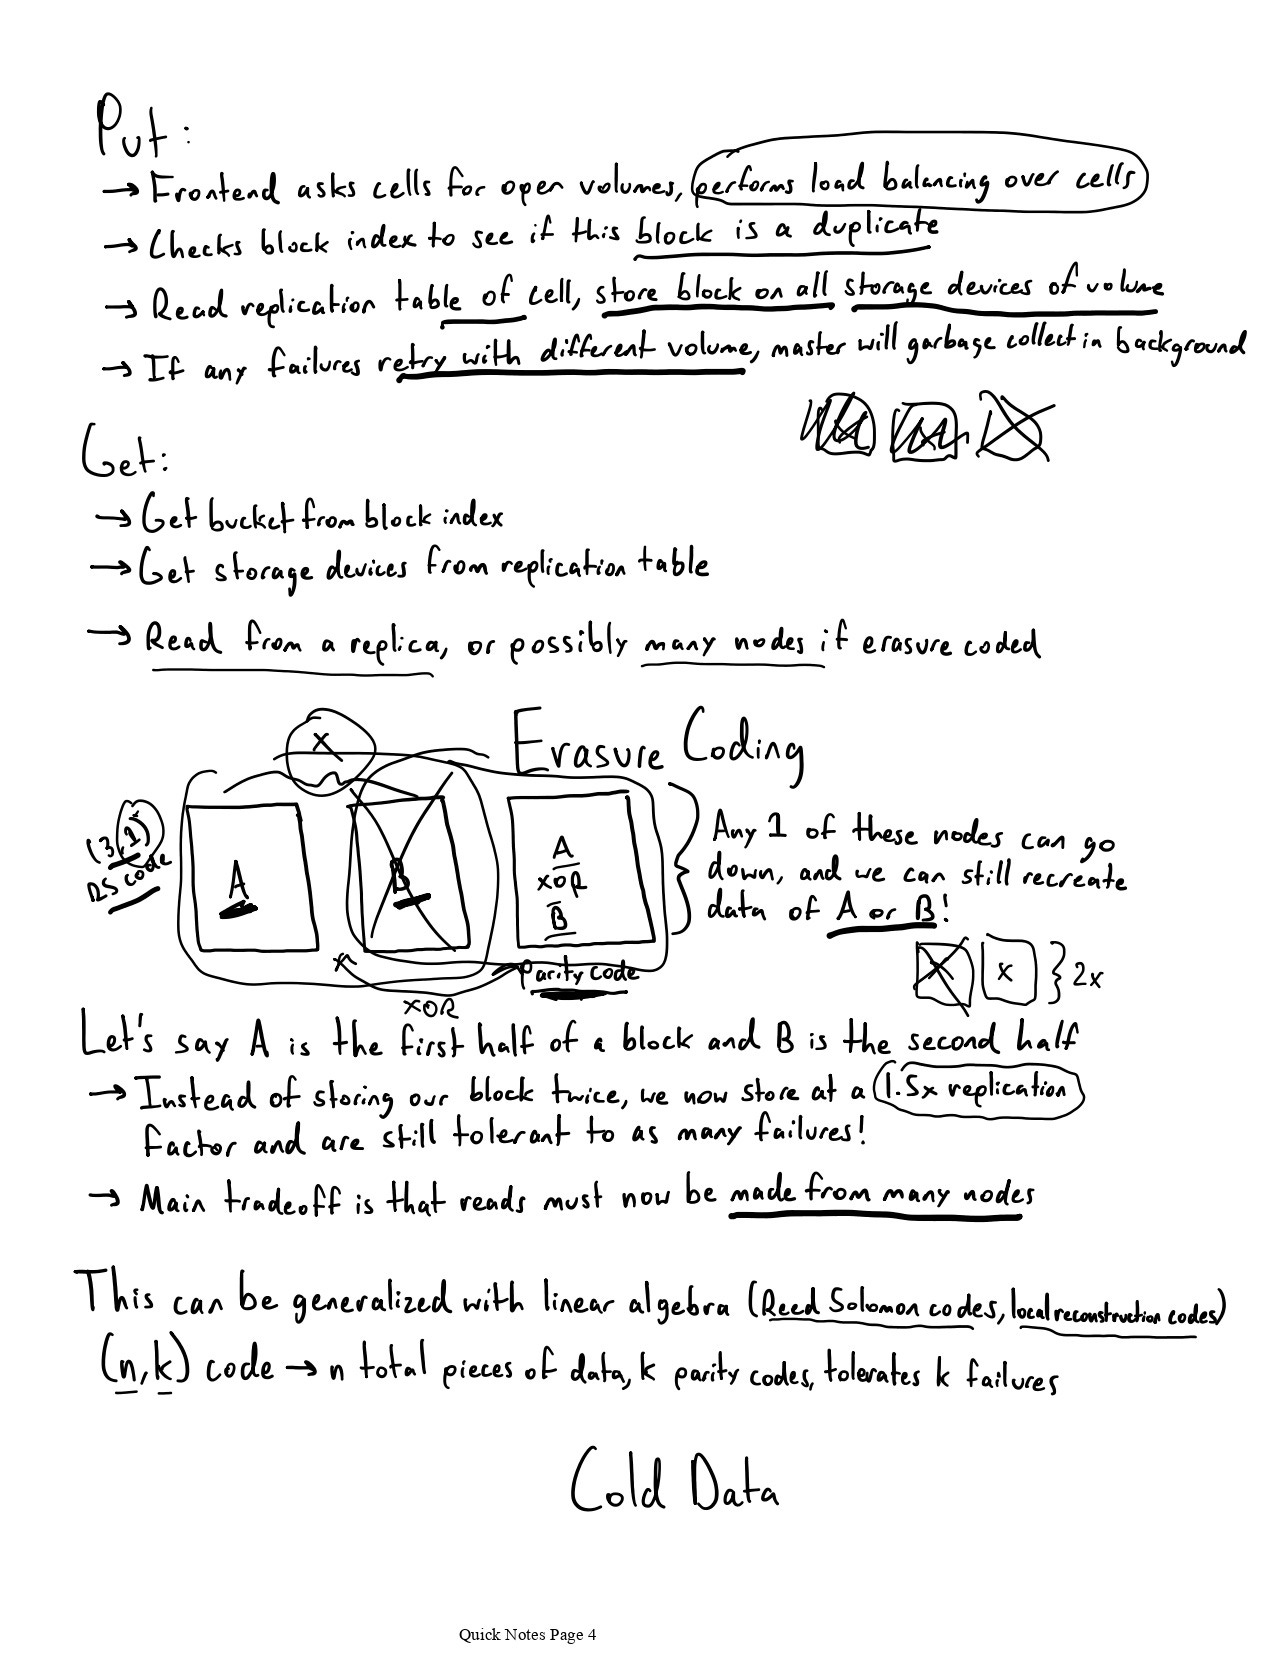 Put:
→ Frontend asks cells for open volumes, performs load balancing over cells
→ Checks block index to see if this block is a duplicate
→ Read replication table of cell, store block on all storage devices of volume
→ If any failures retry with different volume, master will garbage collect in background
Get:
→ Get bucket from block index
→ Get storage devices from replication table
→ Read from a replica, or possibly many nodes if erasure coded
Erasure Coding
X
(3,1)
RS code
A
B
A
XOR
B
Any 1 of these nodes can go
down, and we can still recreate
data of A or B!
parity code
x
XOR
X
X
2x
Let's say A is the first half of a block and B is the second half
→ Instead of storing our block twice, we now store at a 1.5x replication
factor and are still tolerant to as many failures!
→ Main tradeoff is that reads must now be made from many nodes
This can be generalized with linear algebra (Reed Solomon codes, local reconstruction codes)
(n,k) code → n total pieces of data, k parity codes, tolerates k failures
Cold Data
Quick Notes Page 4